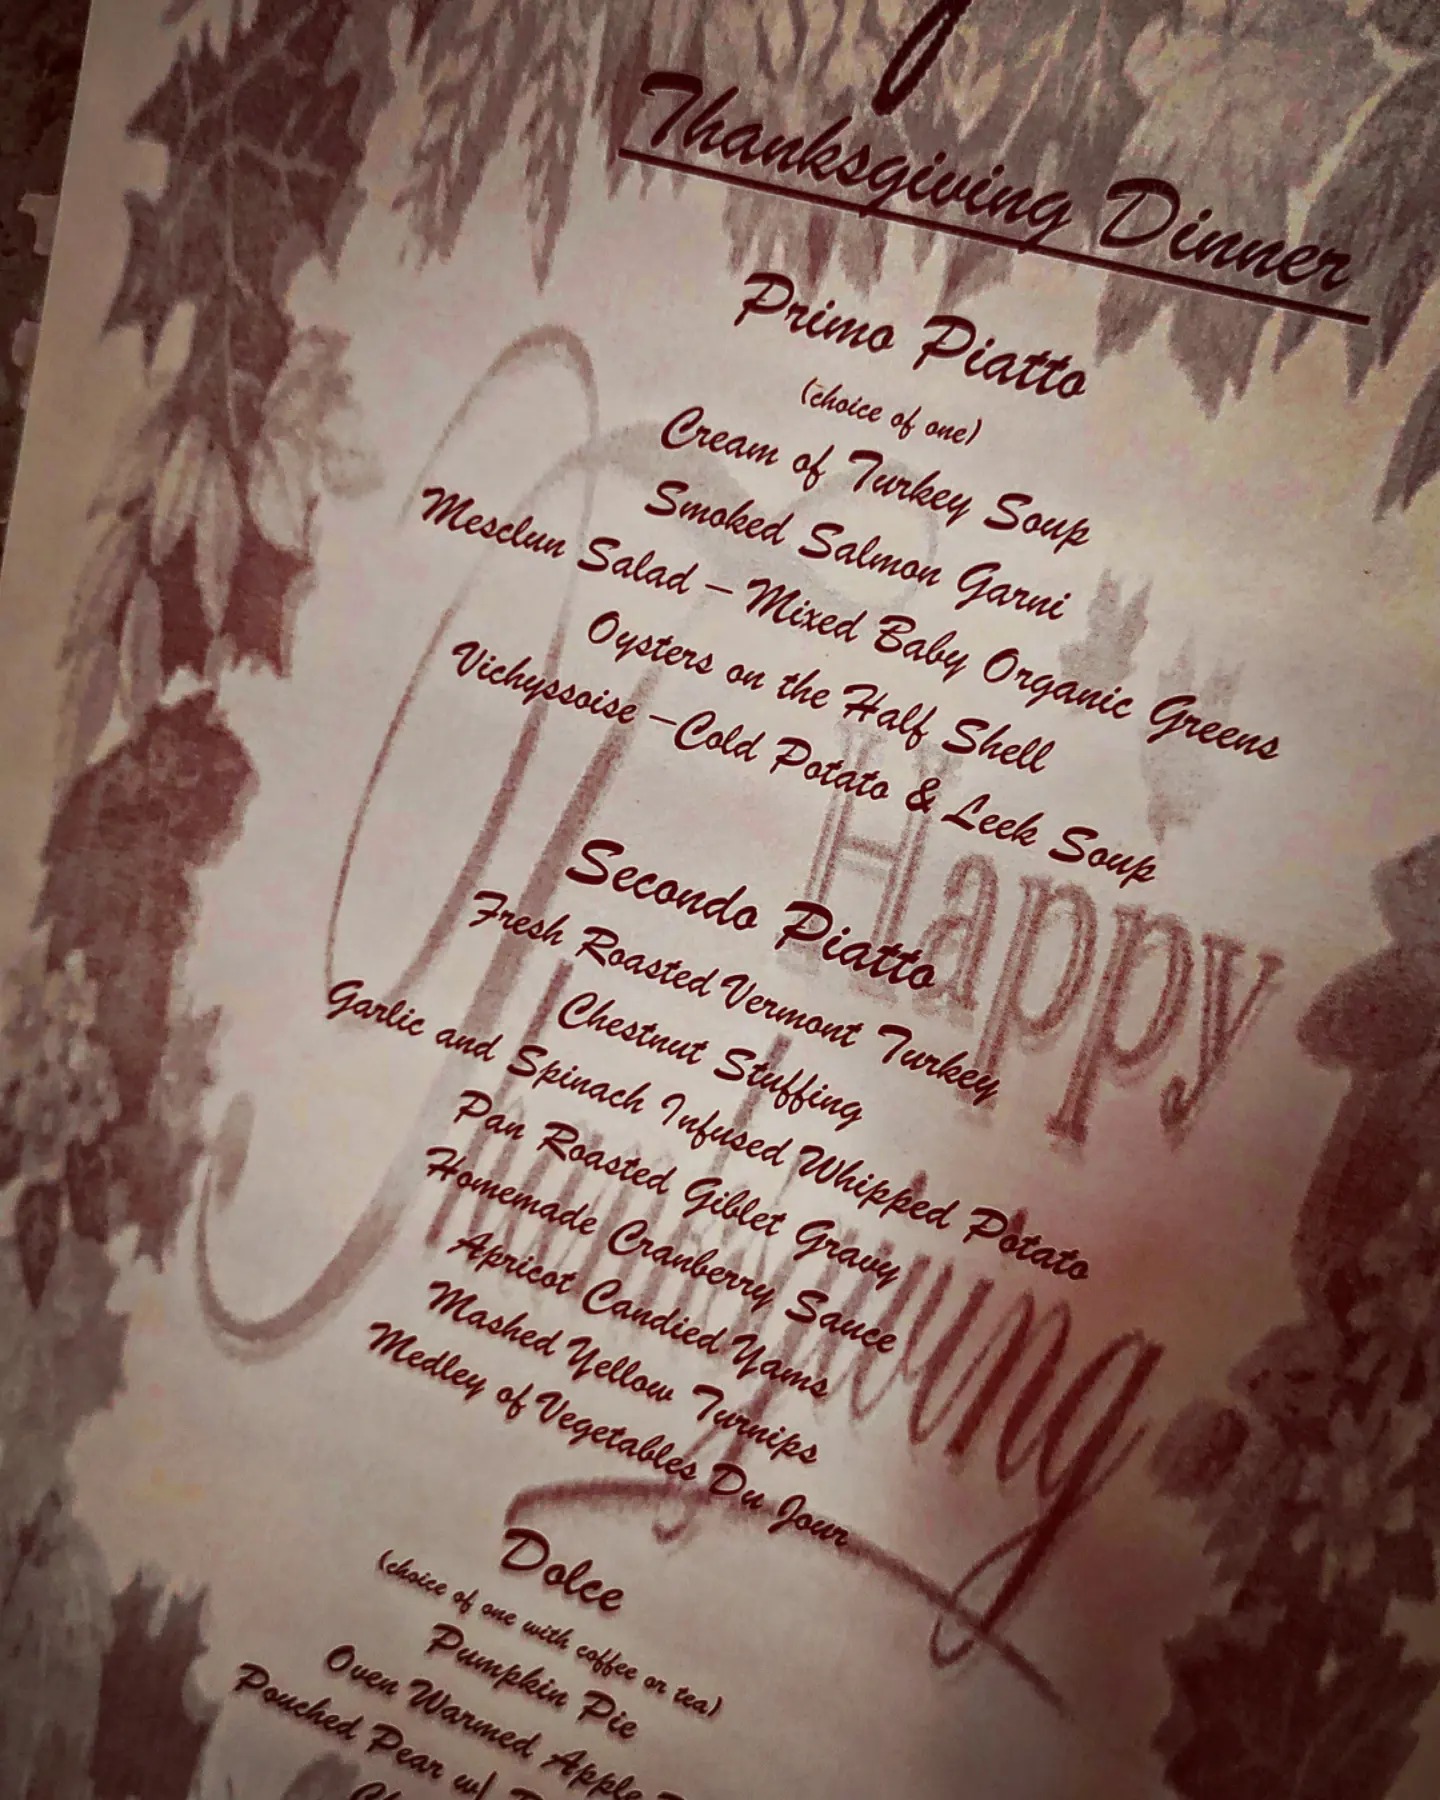 Thanksgiving Dinner
Primo Piatto
(choice of one)
Cream of Turkey Soup
Smoked Salmon Garni
Mesclun Salad – Mixed Baby Organic Greens
Oysters on the Half Shell
Vichyssoise –Cold Potato & Leek Soup
Happy
Secondo Piatto
Fresh Roasted Vermont Turkey
Chestnut Stuffing
Garlic and Spinach Infused Whipped Potato
Pan Roasted Giblet Gravy
Homemade Cranberry Sauce
Apricot Candied Yams
Mashed Yellow Turnips
Medley of Vegetables Du Jour
Thanksgiving
Dolce
(choice of one with coffee or tea)
Pumpkin Pie
Oven Warmed Apple
Pouched Pear w/